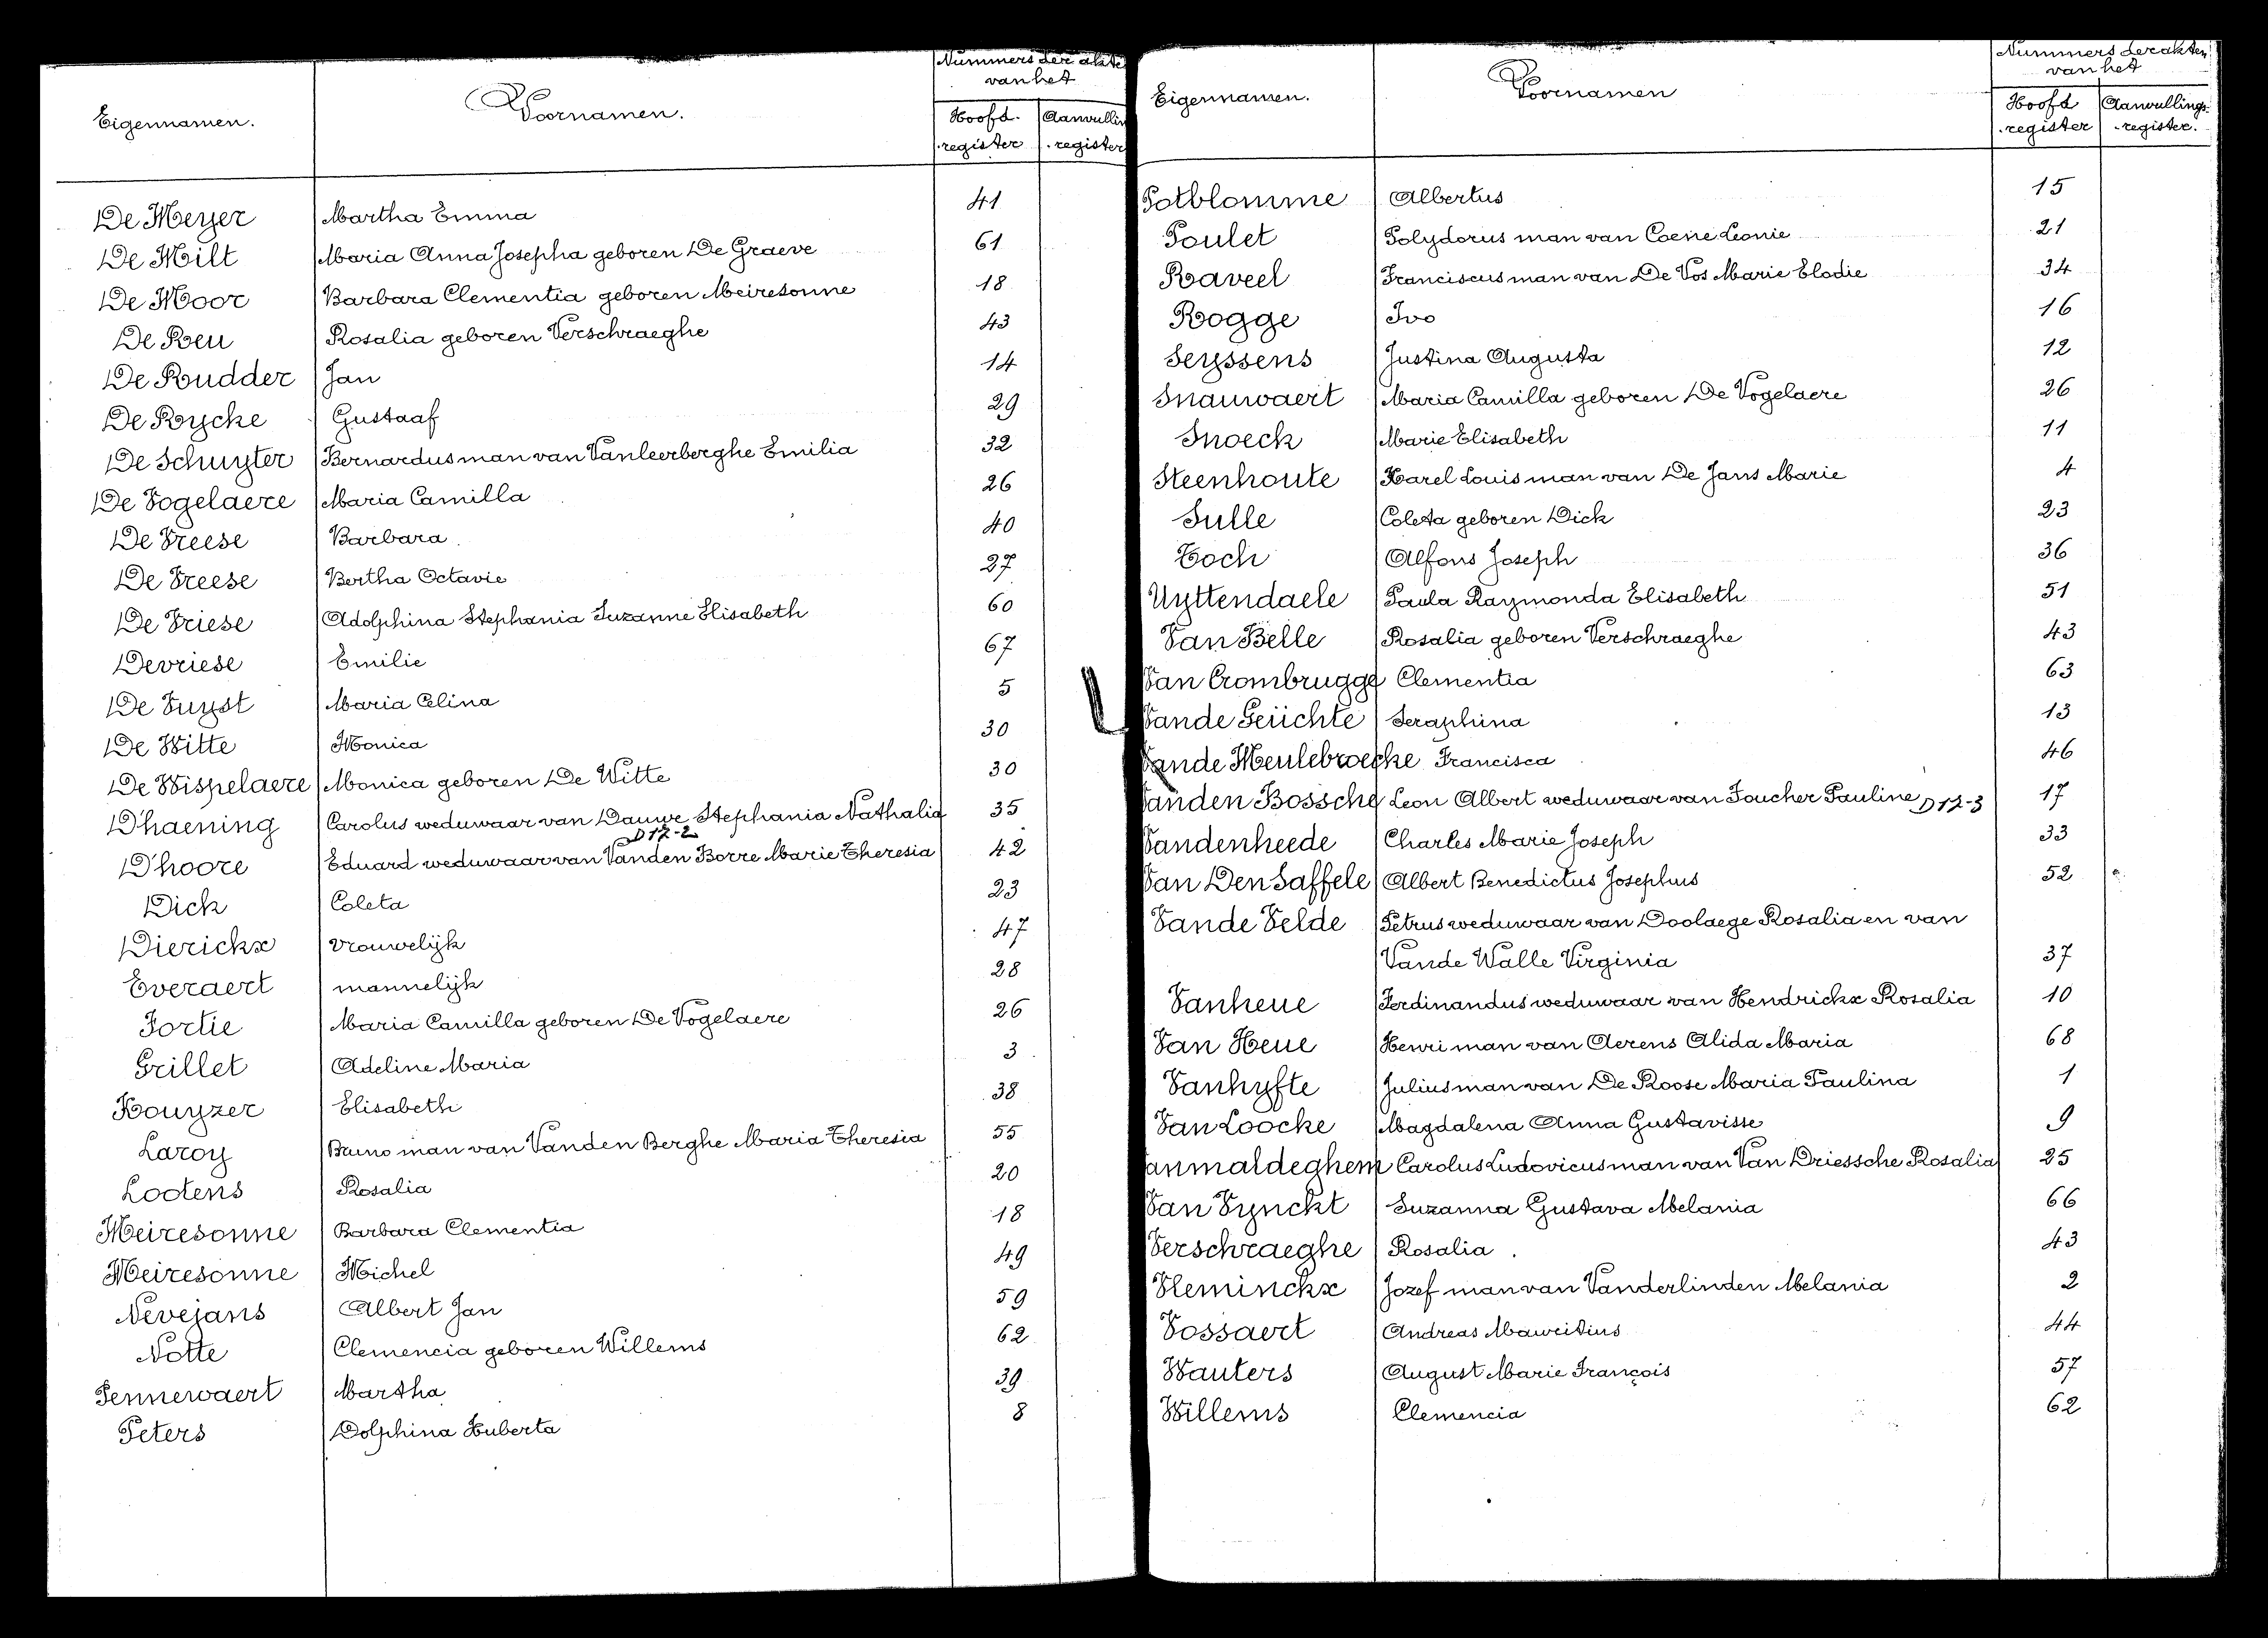 Eigennamen. Voornamen. Nummers der akte
van het
Hoofd- Aanvullin
register register
De Meyer Martha Emma 41
De Milt Maria Anna Josepha geboren De Graeve 61
De Moor Barbara Clementia geboren Meiresonne 18
De Reu Rosalia geboren Verschraeghe 43
De Rudder Jan 14
De Rycke Gustaaf 29
De Schuyter Bernardus man van Vanleerberghe Emilia 32
De Vogelaere Maria Camilla 26
De Vreese Barbara 40
De Vreese Bertha Octavie 27
De Vriese Adolphina Stephania Suzanne Elisabeth 60
Devriese Emilie 67
De Vuyst Maria Celina 5
De Witte Monica 30
De Wispelaere Monica geboren De Witte 30
D'haening Carolus weduwaar van Dauwe Stephania Nathalia 35
D 12-2
D'hoore Eduard weduwaar van Vanden Borre Marie Theresia 42
Dick Coleta 23
Dierickx vrouwelijk 47
Everaert mannelijk 28
Fortie Maria Camilla geboren De Vogelaere 26
Grillet Adeline Maria 3
Kouyzer Elisabeth 38
Laroy Bruno man van Vanden Berghe Maria Theresia 55
Lootens Rosalia 20
Meiresonne Barbara Clementia 18
Meiresonne Michel 49
Nevejans Albert Jan 59
Notte Clemencia geboren Willems 62
Pennewaert Martha 39
Peters Dolphina Huberta 8
Eigennamen. Voornamen Nummers der akten
van het
Hoofd Aanvullings-
register register.
Potblomme Albertus 15
Poulet Polydorus man van Coene Leonie 21
Raveel Franciscus man van De Vos Marie Elodie 34
Rogge Ivo 16
Seyssens Justina Augusta 12
Snauwaert Maria Camilla geboren De Vogelaere 26
Snoeck Marie Elisabeth 11
Steenhoute Karel Louis man van De Jans Marie 4
Sulle Coleta geboren Dick 23
Toch Alfons Joseph 36
Uyttendaele Paula Raymonda Elisabeth 51
Van Belle Rosalia geboren Verschraeghe 43
Van Crombrugge Clementia 63
Vande Geüchte Seraphina 13
Vande Meulebroecke Francisca 46
Vanden Bossche Leon Albert weduwaar van Foucher Pauline D 12-3 17
Vandenheede Charles Marie Joseph 33
Van Den Saffele Albert Benedictus Josephus 52
Vande Velde Petrus weduwaar van Doolaege Rosalia en van
Vande Walle Virginia 37
Vanheue Ferdinandus weduwaar van Hendrickx Rosalia 10
Van Heue Henri man van Aerens Alida Maria 68
Vanhyfte Julius man van De Roose Maria Paulina 1
Van Loocke Magdalena Anna Gustavisse 9
anmaldeghem Carolus Ludovicus man van Van Driessche Rosalia 25
Van Vynckt Suzanna Gustava Melania 66
Verschraeghe Rosalia 43
Vleminckx Jozef man van Vanderlinden Melania 2
Vossaert Andreas Mauritius 44
Wauters August Marie François 57
Willems Clemencia 62